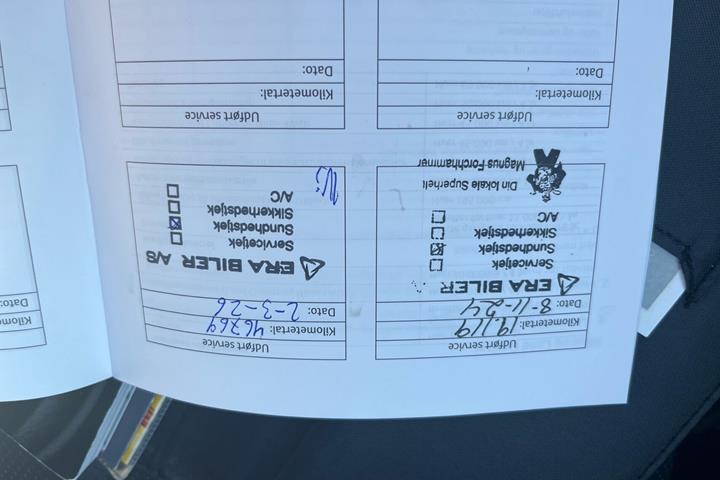 Udført service
Kilometertal: 19.119
Dato: 8-11-24
ERA BILER
Servicetjek
Sundhedstjek
Sikkerhedstjek
A/C
Din lokale Superhelt
Magnus Forchhammer
Udført service
Kilometertal: 46764
Dato: 2-3-26
ERA BILER A/S
Servicetjek
Sundhedstjek
Sikkerhedstjek
A/C
Udført service
Kilometertal:
Dato:
Udført service
Kilometertal:
Dato:
Dato: